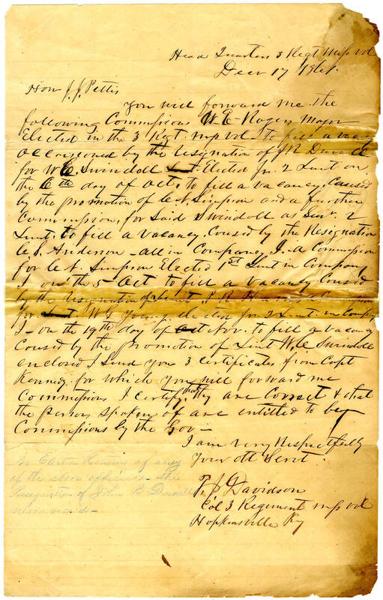 Head Quarters 3 Regt Miss Vol
Decr 17 1861.
Hon J. J. Pettus
You will forward me the
following Commissions W E Rogers Major
Elected in the 3 Regt Miss Vol to fill a vacancy
occasioned by the resignation of
for W E Swindoll Elected Jr. 2 Lieut on
the 6th day of Oct to fill a vacancy, Caused
by the promotion of A. A. Simpson and a further
Commission, for Said Swindoll as Senr. 2
Lieut. to fill a vacancy Caused by the Resignation
Anderson – all in Company I – a Commission
for A. A. Simpson Elected 1st Lieut in Company
I on the 5 Oct to fill a vacancy Caused
by the resignation of
for W G Elected Jr 2 Lieut in Company
I – on the 19th day of Nov. to fill a vacancy
Caused by the promotion of Lieut W. E. Swindoll
enclosed I Send you 3 certificates from Capt
Kennedy, for which you will forward me
Commissions I certify they are Correct & that
the persons spoken of are entitled to be
Commissions by the Gov –
I am Very Respectfully
Your Obt Servt.
T. J. Davidson
Col 3 Regiment Miss Vol
Hopkinsville Ky
No Election Returns of any
of the above officers – the
resignation of John R